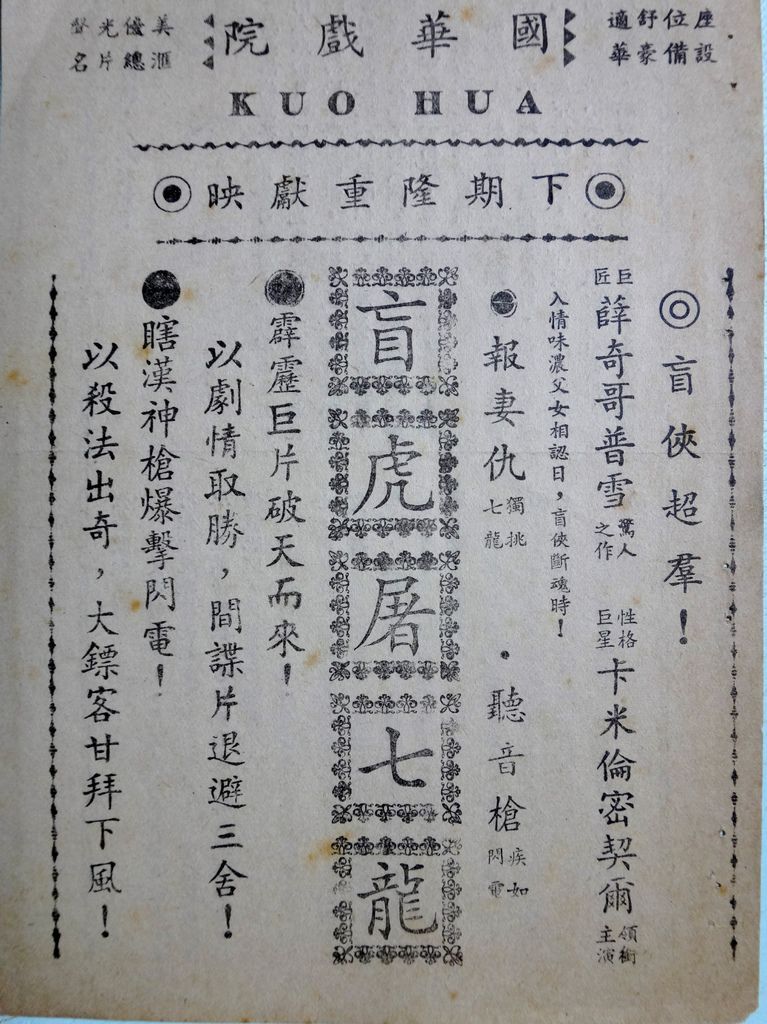 座位舒適
設備豪華
國華戲院
優美光
滙總片名
KUO HUA
下期隆重獻映
◎盲俠超羣！
巨匠薛奇哥普雪驚人之作 性格巨星卡米倫密契爾領銜主演
入情味濃父女相認日，盲俠斷魂時！
報妻仇獨挑七龍・聽音槍疾如閃電
盲虎屠七龍
●霹靂巨片破天而來！
以劇情取勝，間諜片退避三舍！
●瞎漢神槍爆擊閃電！
以殺法出奇，大鏢客甘拜下風！